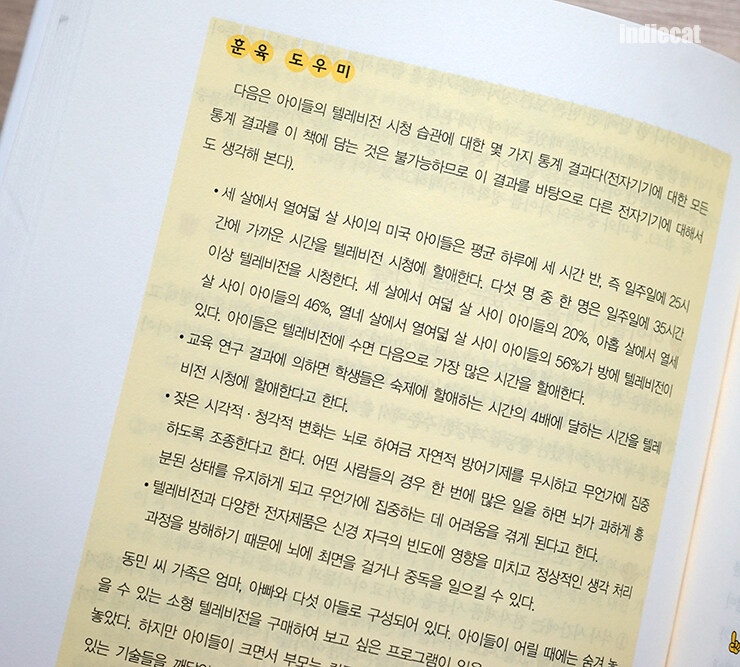 indiecat
훈육 도우미
다음은 아이들의 텔레비전 시청 습관에 대한 몇 가지 통계 결과다(전자기기에 대한 모든
통계 결과를 이 책에 담는 것은 불가능하므로 이 결과를 바탕으로 다른 전자기기에 대해서
도 생각해 본다).
• 세 살에서 열여덟 살 사이의 미국 아이들은 평균 하루에 세 시간 반, 즉 일주일에 25시
간에 가까운 시간을 텔레비전 시청에 할애한다. 다섯 명 중 한 명은 일주일에 35시간
이상 텔레비전을 시청한다. 세 살에서 여덟 살 사이 아이들의 20%, 아홉 살에서 열세
살 사이 아이들의 46%, 열네 살에서 열여덟 살 사이 아이들의 56%가 방에 텔레비전이
있다. 아이들은 텔레비전에 수면 다음으로 가장 많은 시간을 할애한다.
• 교육 연구 결과에 의하면 학생들은 숙제에 할애하는 시간의 4배에 달하는 시간을 텔레
비전 시청에 할애한다고 한다.
• 잦은 시각적 · 청각적 변화는 뇌로 하여금 자연적 방어기제를 무시하고 무언가에 집중
하도록 조종한다고 한다. 어떤 사람들의 경우 한 번에 많은 일을 하면 뇌가 과하게 흥
분된 상태를 유지하게 되고 무언가에 집중하는 데 어려움을 겪게 된다고 한다.
• 텔레비전과 다양한 전자제품은 신경 자극의 빈도에 영향을 미치고 정상적인 생각 처리
과정을 방해하기 때문에 뇌에 최면을 걸거나 중독을 일으킬 수 있다.
동민 씨 가족은 엄마, 아빠와 다섯 아들로 구성되어 있다. 아이들이 어릴 때에는 숨겨 놓
을 수 있는 소형 텔레비전을 구매하여 보고 싶은 프로그램이 있을
놓았다. 하지만 아이들이 크면서 부모는
있는 기술들을